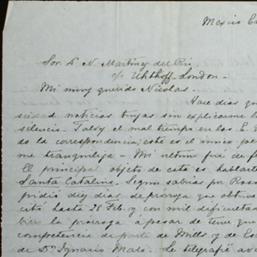 Mexico E
Sor. D. N. Martinez del Rio
c/o Uhthoff. London.
Mi muy querido Nicolas.
Hace dias qu
noticias tuyas sin explicarme l
silencio. Talvez el mal tiempo en los E.
do la correspondencia, este es el unico
me tranquiliza - Mi ultima fué de f
El principal objeto de esta es hablarte
Santa Catalina. Segun sabias por
pidió diez dias de proroga y se obtuv
hasta el Feb. y con mil dificultad
la proroga á pesar de tener que
competencia de parte de Mills y de
de Dn Ignacio Malo. Le telegrafié